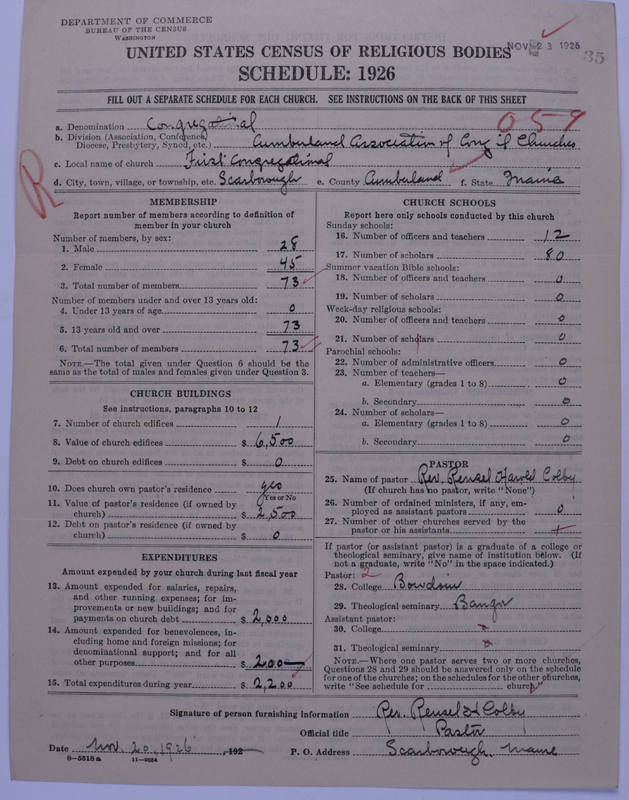 DEPARTMENT OF COMMERCE
BUREAU OF THE CENSUS
WASHINGTON
NOV 23 1926
35
UNITED STATES CENSUS OF RELIGIOUS BODIES
SCHEDULE: 1926
FILL OUT A SEPARATE SCHEDULE FOR EACH CHURCH. SEE INSTRUCTIONS ON THE BACK OF THIS SHEET
059
a. Denomination Congregational
b. Division (Association, Conference, Diocese, Presbytery, Synod, etc.) Cumberland Association of Cong'l Churches
c. Local name of church First Congregational
d. City, town, village, or township, etc. Scarborough e. County Cumberland f. State Maine
R
MEMBERSHIP
Report number of members according to definition of member in your church
Number of members, by sex:
1. Male 28
2. Female 45
3. Total number of members 73
Number of members under and over 13 years old:
4. Under 13 years of age 0
5. 13 years old and over 73
6. Total number of members 73
NOTE.—The total given under Question 6 should be the same as the total of males and females given under Question 3.
CHURCH BUILDINGS
See instructions, paragraphs 10 to 12
7. Number of church edifices 1
8. Value of church edifices $ 6,500
9. Debt on church edifices $ 0
10. Does church own pastor's residence yes
Yes or No
11. Value of pastor's residence (if owned by church) $ 2,500
12. Debt on pastor's residence (if owned by church) $ 0
EXPENDITURES
Amount expended by your church during last fiscal year
13. Amount expended for salaries, repairs, and other running expenses; for improvements or new buildings; and for payments on church debt $ 2,000
14. Amount expended for benevolences, including home and foreign missions; for denominational support; and for all other purposes $ 200
15. Total expenditures during year $ 2,200
CHURCH SCHOOLS
Report here only schools conducted by this church
Sunday schools:
16. Number of officers and teachers 12
17. Number of scholars 80
Summer vacation Bible schools:
18. Number of officers and teachers 0
19. Number of scholars 0
Week-day religious schools:
20. Number of officers and teachers 0
21. Number of scholars 0
Parochial schools:
22. Number of administrative officers 0
23. Number of teachers—
a. Elementary (grades 1 to 8) 0
b. Secondary 0
24. Number of scholars—
a. Elementary (grades 1 to 8) 0
b. Secondary 0
PASTOR
25. Name of pastor Rev. Rensel Harold Colby
(If church has no pastor, write "None")
26. Number of ordained ministers, if any, employed as assistant pastors 0
27. Number of other churches served by the pastor or his assistants
If pastor (or assistant pastor) is a graduate of a college or theological seminary, give name of institution below. (If not a graduate, write "No" in the space indicated.)
Pastor: 2
28. College Bowdoin
29. Theological seminary Bangor
Assistant pastor:
30. College
31. Theological seminary
NOTE.—Where one pastor serves two or more churches, Questions 28 and 29 should be answered only on the schedule for one of the churches; on the schedules for the other churches, write "See schedule for church"
Signature of person furnishing information Rev. Rensel H Colby
Official title Pastor
Date Nov. 20, 1926, 192 P. O. Address Scarborough, Maine
8-5518a 11-9054